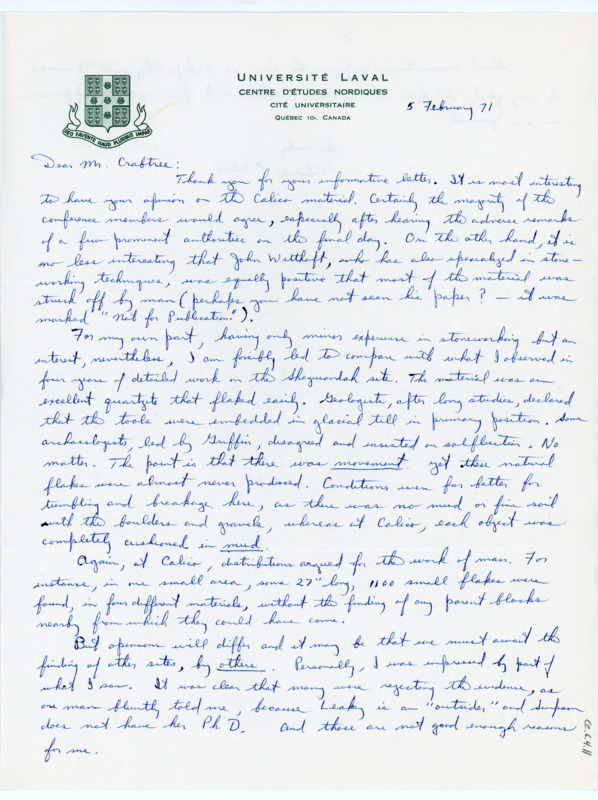 UNIVERSITÉ LAVAL
CENTRE D'ÉTUDES NORDIQUES
CITÉ UNIVERSITAIRE
QUÉBEC 10e, CANADA
DEO FAVENTE HAUD PLURIBUS IMPAR
5 February 71
Dear Mr. Crabtree:
Thank you for your informative letter. It is most interesting
to have your opinion on the Calico material. Certainly the majority of the
conference members would agree, especially after hearing the adverse remarks
of a few prominent authorities on the final day. On the other hand, it is
no less interesting that John Witthoft, who has also specialized in stone-
working techniques, was equally positive that most of the material was
struck off by man (perhaps you have not seen his paper? – it was
marked "Not for Publication").
For my own part, having only minor experience in stoneworking but an
interest, nevertheless, I am forcibly led to compare with what I observed in
four years of detailed work on the Sheguiandah site. The material was an
excellent quartzite that flaked easily. Geologists, after long studies, declared
that the tools were embedded in glacial till in primary position. Some
archaeologists, led by Griffin, disagreed and insisted on solifluction. No
matter. The point is that there was movement yet these natural
flakes were almost never produced. Conditions were far better for
tumbling and breakage here, as there was no mud or fine soil
with the boulders and gravels, whereas at Calico, each object was
completely cushioned in mud.
Again, at Calico, distributions argued for the work of man. For
instance, in one small area, some 27" long, 1100 small flakes were
found, in four different materials, without the finding of any parent blocks
nearby from which they could have come.
But opinions will differ and it may be that we must await the
finding of other sites, by others. Personally, I was impressed by part of
what I saw. It was clear that many were rejecting the evidence, as
one man bluntly told me, because Leakey is an "outsider" and Simpson
does not have her Ph.D. And those are not good enough reasons
for me.